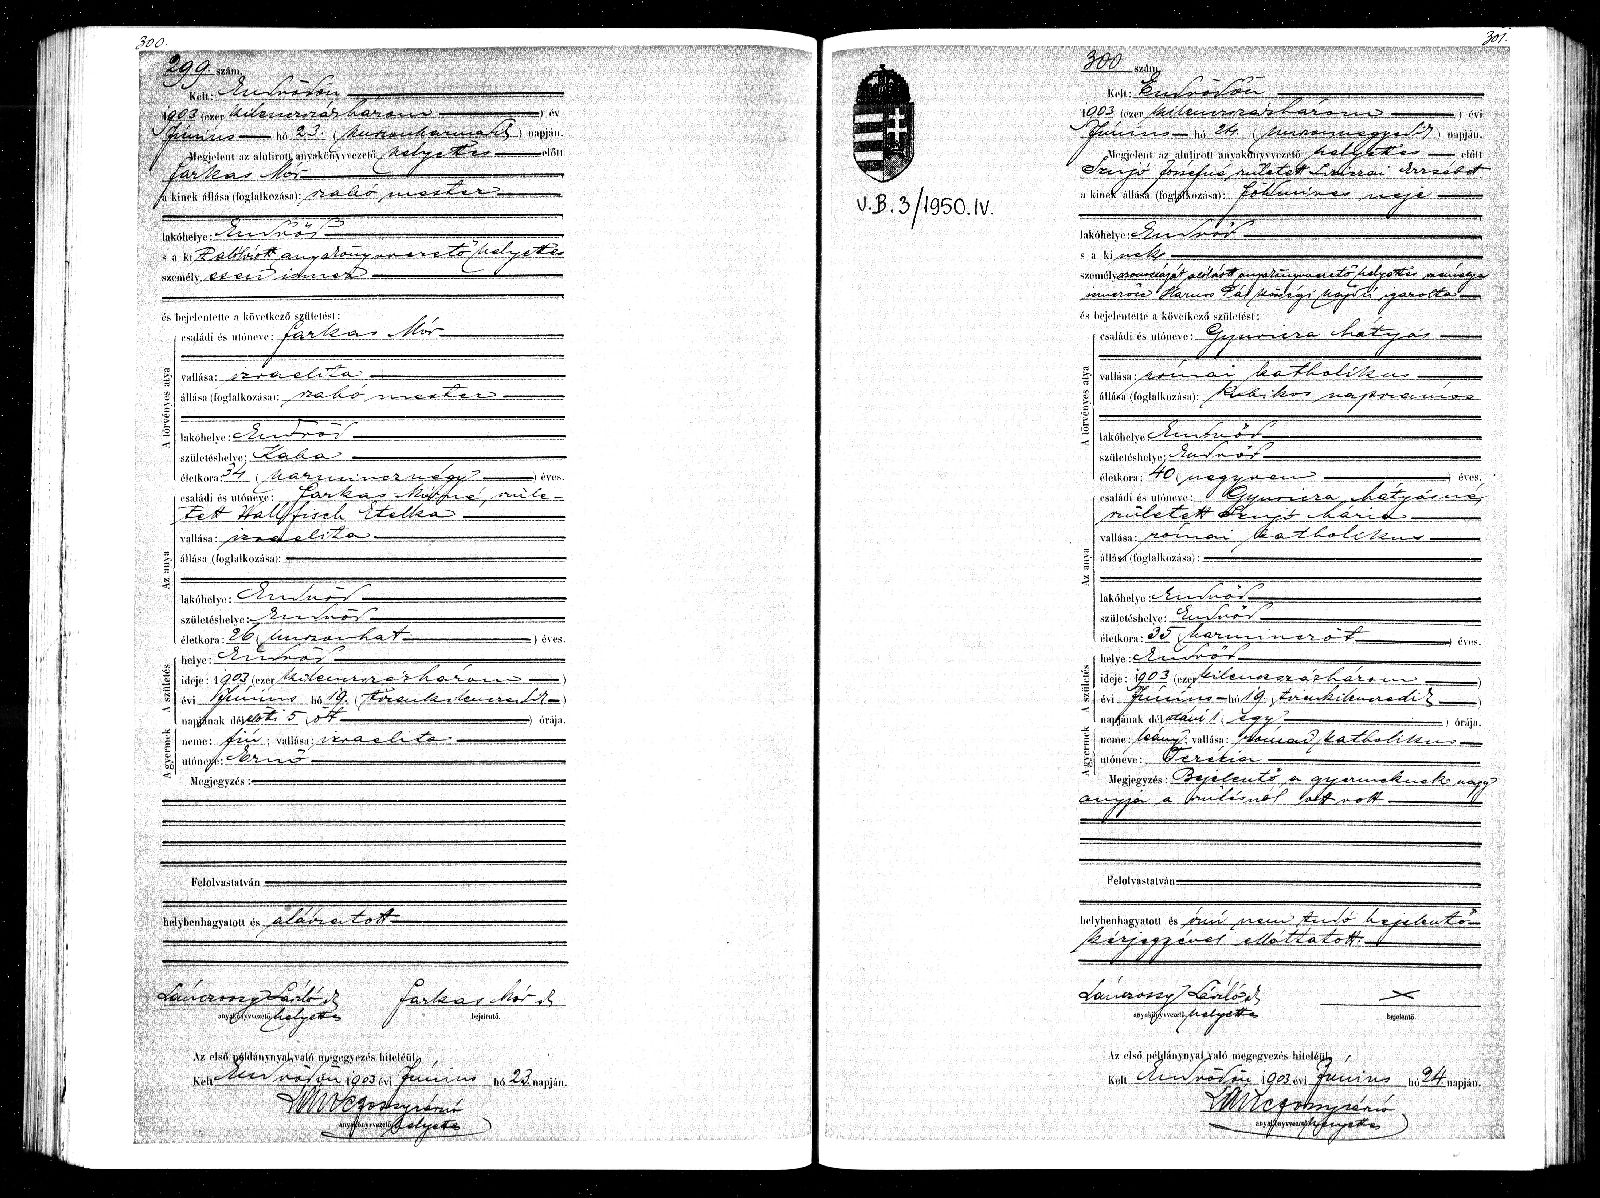 300.
299 szám.
Kelt: Endrődön
1903 (ezer kilenczszázhárom ) év
Június hó 23. ( huszonharmadik ) napján.
Megjelent az alulirott anyakönyvvezető helyettes előtt
Farkas Mór
a kinek állása (foglalkozása): szabó mester
lakóhelye: Endrőd
s a ki alólirott anyakönyvvezető helyettes
személyesen ismer
és bejelentette a következő születést:
A törvényes atya
családi és utóneve: Farkas Mór
vallása: izraelita
állása (foglalkozása): szabó mester
lakóhelye: Endrőd
születéshelye: Kaba
életkora: 34 ( harmincznégy ) éves.
Az anya
családi és utóneve: Farkas Mórné, szüle-
tett Wallfisch Etelka
vallása: izraelita
állása (foglalkozása):
lakóhelye: Endrőd
születéshelye: Endrőd
életkora: 26 ( huszonhat ) éves.
A születés
helye: Endrőd
ideje: 1903 (ezer kilenczszázhárom )
évi Június hó 19. ( tizenkilenczedik )
napjának dél előtt 5 öt ) órája.
A gyermek
neme: fiú; vallása: izraelita
utóneve: Ernő
Megjegyzés:
Felolvastatván
helybenhagyatott és aláíratott
Lánczossy László sk Farkas Mór sk
anyakönyvvezető helyettes bejelentő.
Az első példánynyal való megegyezés hiteléül,
Kelt Endrődön 1903 évi Június hó 23 napján.
anyakönyvvezető helyettes
301.
300 szám.
V.B.3/1950.IV.
Kelt: Endrődön
1903 (ezer kilenczszázhárom ) évi
Június hó 24. ( huszonnegyedik ) napján.
Megjelent az alulirott anyakönyvvezető helyettes előtt
Szujó Józsefné, született Erzsébet
a kinek állása (foglalkozása): földmíves neje
lakóhelye: Endrőd
s a ki nek
személyazonosságát alólirott anyakönyvvezető helyettes
ismerőse községi igazolta
és bejelentette a következő születést:
A törvényes atya
családi és utóneve: Gyuricza Mátyás
vallása: római katholikus
állása (foglalkozása): kubikos napszámos
lakóhelye: Endrőd
születéshelye: Endrőd
életkora: 40 ( negyven ) éves.
Az anya
családi és utóneve: Gyuricza Mátyásné,
született Szujó Mária
vallása: római katholikus
állása (foglalkozása):
lakóhelye: Endrőd
születéshelye: Endrőd
életkora: 35 ( harminczöt ) éves.
A születés
helye: Endrőd
ideje: 1903 (ezer kilenczszázhárom )
évi Június hó 19. ( tizenkilenczedik )
napjának dél utáni 1 egy ) órája.
A gyermek
neme: leány; vallása: római katholikus
utóneve: Terézia
Megjegyzés: Bejelentő a gyermeknek nagy
anyja a szülésnél ott volt
Felolvastatván
helybenhagyatott és írni nem tudó bejelentő
kézjegyével elláttatott.
Lánczossy László sk X
anyakönyvvezető helyettes bejelentő
Az első példánynyal való megegyezés hiteléül,
Kelt Endrődön 1903 évi Június hó 24 napján.
anyakönyvvezető helyettes